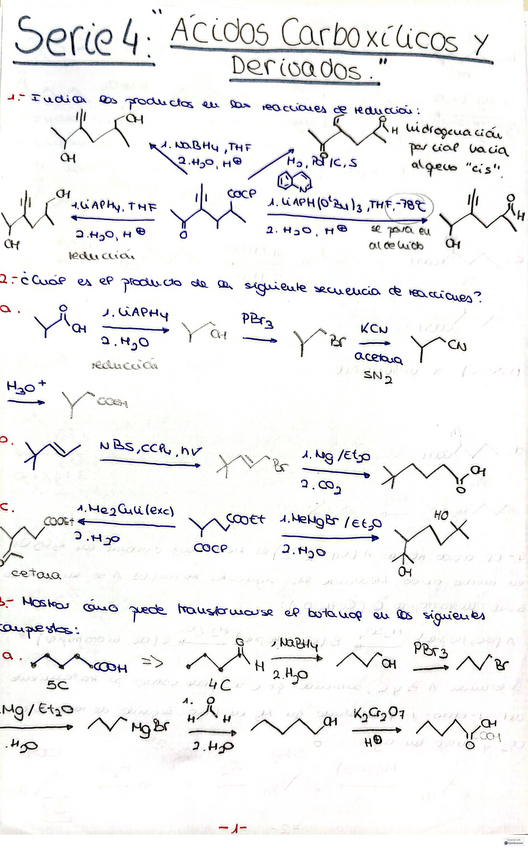 Serie 4: "Ácidos Carboxílicos y
Derivados."
1.- Indica los productos en las reacciones de reducción:
OH
OH
1. NaBH4, THF
2. H2O, H⊕
O
O
H
H2, Pd/C, S
N
hidrogenación
parcial hacia
alqueno "cis".
OH
OH
1. LiAlH4, THF
2. H2O, H⊕
reducción
O
COCl
1. LiAlH(OtBu)3, THF, -78ºC
2. H2O, H⊕
se para en
aldehido
O
H
OH
2.- ¿Cuál es el producto de la siguiente secuencia de reacciones?
a.
O
OH
1. LiAlH4
2. H2O
reducción
OH
PBr3
Br
KCN
acetona
SN2
CN
H3O+
COOH
b.
NBS, CCl4, hν
Br
1. Mg/Et2O
2. CO2
OH
O
c.
COOEt
O
cetona
1. Me2CuLi (exc)
2. H2O
COOEt
COCl
1. MeMgBr/Et2O
2. H2O
HO
OH
3.- Mostrar cómo puede transformarse el butanol en los siguientes
compuestos:
a.
COOH
5C
=>
O
H
4C
1. NaBH4
2. H2O
OH
PBr3
Br
Mg/Et2O
.H2O
MgBr
1.
O
H H
2. H2O
OH
K2Cr2O7
H⊕
OH
O
-1-